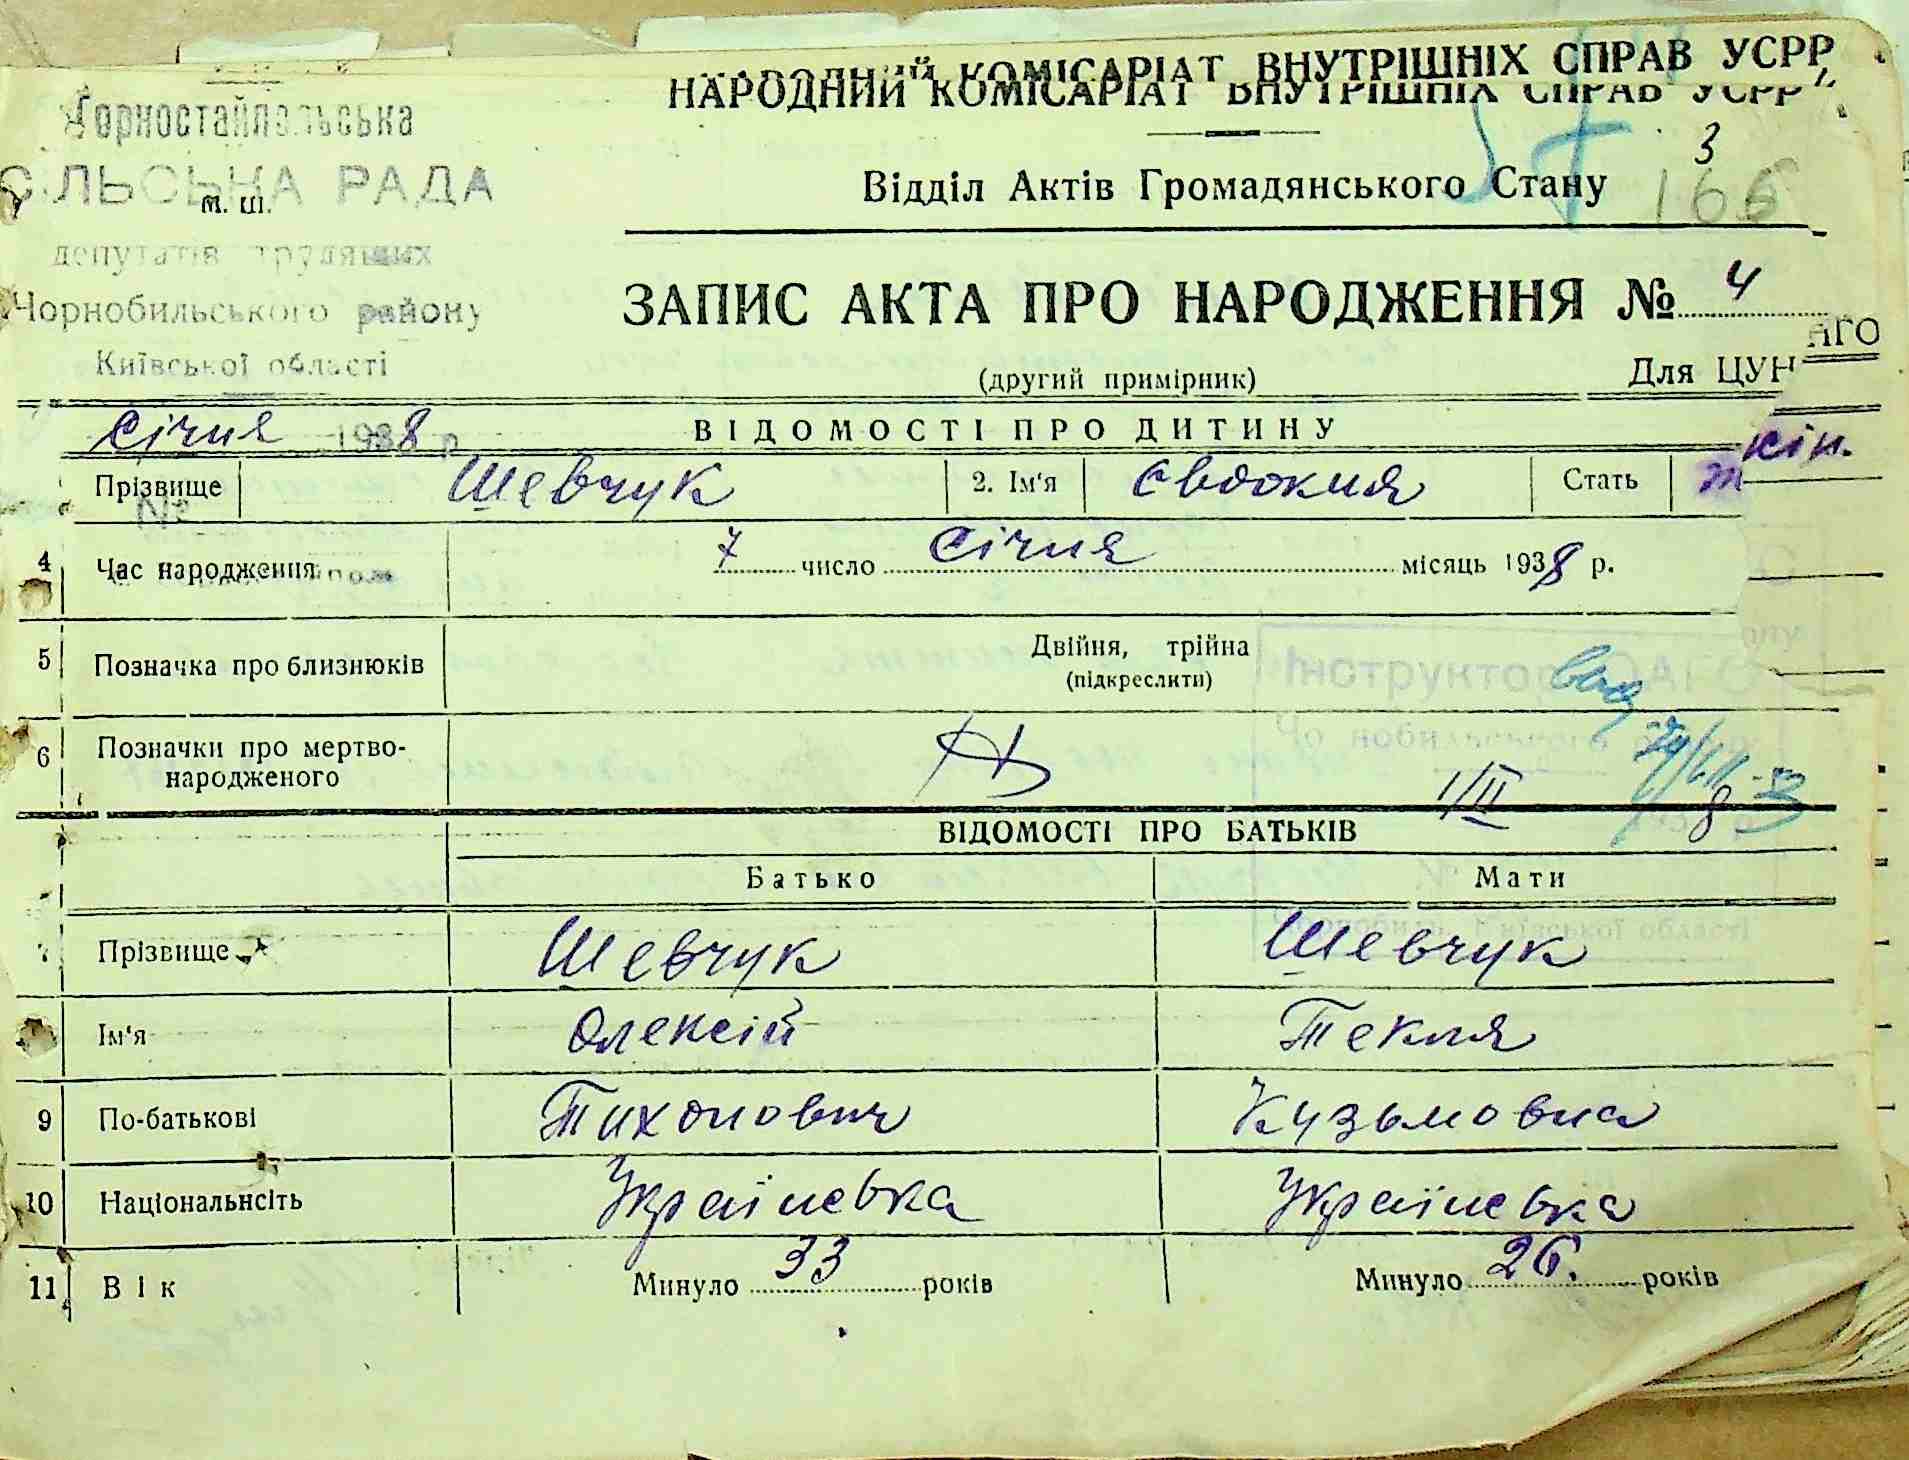 НАРОДНИЙ КОМІСАРІАТ ВНУТРІШНІХ СПРАВ УСРР
НАРОДНИЙ КОМІСАРІАТ ВНУТРІШНІХ СПРАВ УСРР
Горностайпольська
СІЛЬСЬКА РАДА
м. ш.
депутатів трудящих
Чорнобильського району
Київської області
Січня 1938 р.
№
3
166
Відділ Актів Громадянського Стану
ЗАПИС АКТА ПРО НАРОДЖЕННЯ № 4
(другий примірник)
Для ЦУН
АГО
ВІДОМОСТІ ПРО ДИТИНУ
Прізвище Шевчук 2. Ім'я Євдокия Стать
кін.
4 Час народження 7 число Січня місяць 1938 р.
5 Позначка про близнюків Двійня, трійна
(підкреслити)
Інструктор ОАГС
6 Позначки про мертво-
народженого
1/II 8
ВІДОМОСТІ ПРО БАТЬКІВ
Батько Мати
Київської області
7 Прізвище Шевчук Шевчук
Ім'я Олексій Текля
9 По-батькові Тихонович Кузьмовна
10 Національнсіть Українська Українська
11 Вік Минуло 33 років Минуло 26. років